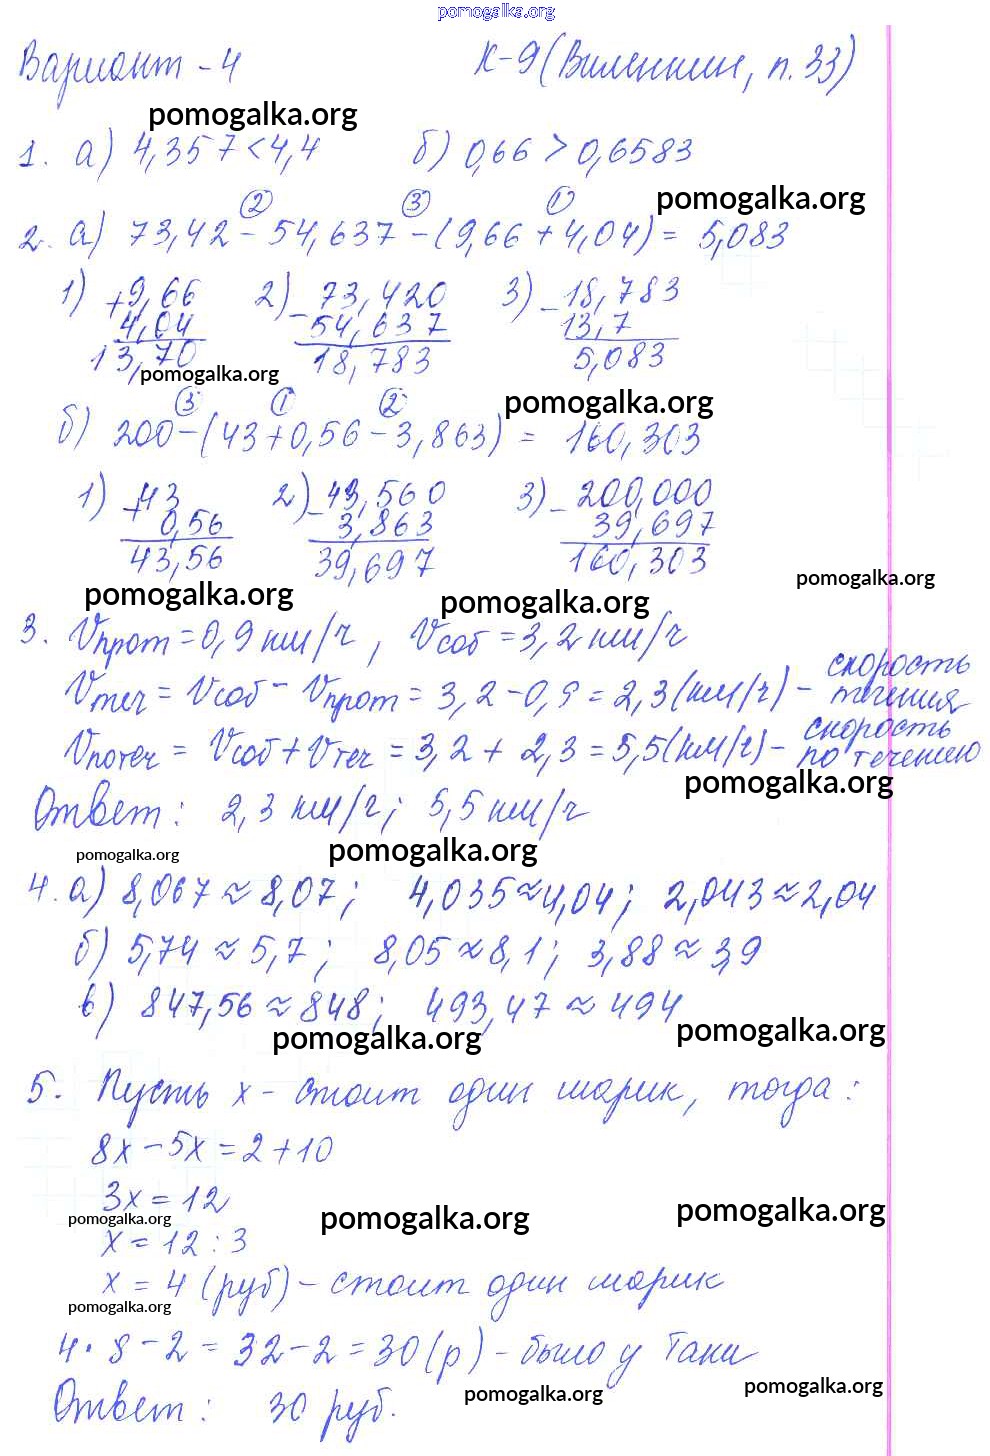 pomogalka.org
Вариант - 4 К-9 (Виленкин, п. 33)
pomogalka.org
1. а) 4,357 < 4,4 б) 0,66 > 0,6583
pomogalka.org
② ③ ①
2. а) 73,42 - 54,637 - (9,66 + 4,04) = 5,083
1) + 9,66 2) - 73,420 3) - 18,783
4,04 54,637 13,7
13,70 18,783 5,083
pomogalka.org
③ ① ② pomogalka.org
б) 200 - (43 + 0,56 - 3,863) = 160,303
1) + 43 2) - 43,560 3) - 200,000
0,56 3,863 39,697
43,56 39,697 160,303
pomogalka.org pomogalka.org pomogalka.org
3. Vпрот = 0,9 км/ч, Vсоб = 3,2 км/ч
Vтеч = Vсоб - Vпрот = 3,2 - 0,9 = 2,3 (км/ч) - скорость течения
Vпотеч = Vсоб + Vтеч = 3,2 + 2,3 = 5,5 (км/ч) - скорость по течению
pomogalka.org
Ответ: 2,3 км/ч; 5,5 км/ч
pomogalka.org pomogalka.org
4. а) 8,067 ≈ 8,07; 4,035 ≈ 4,04; 2,043 ≈ 2,04
б) 5,74 ≈ 5,7; 8,05 ≈ 8,1; 3,88 ≈ 3,9
в) 847,56 ≈ 848; 493,47 ≈ 494
pomogalka.org pomogalka.org
5. Пусть x - стоит один шарик, тогда:
8x - 5x = 2 + 10
3x = 12
pomogalka.org pomogalka.org pomogalka.org
x = 12 : 3
x = 4 (руб) - стоит один шарик
pomogalka.org
4 · 8 - 2 = 32 - 2 = 30 (р) - было у Тани
pomogalka.org pomogalka.org
Ответ: 30 руб.